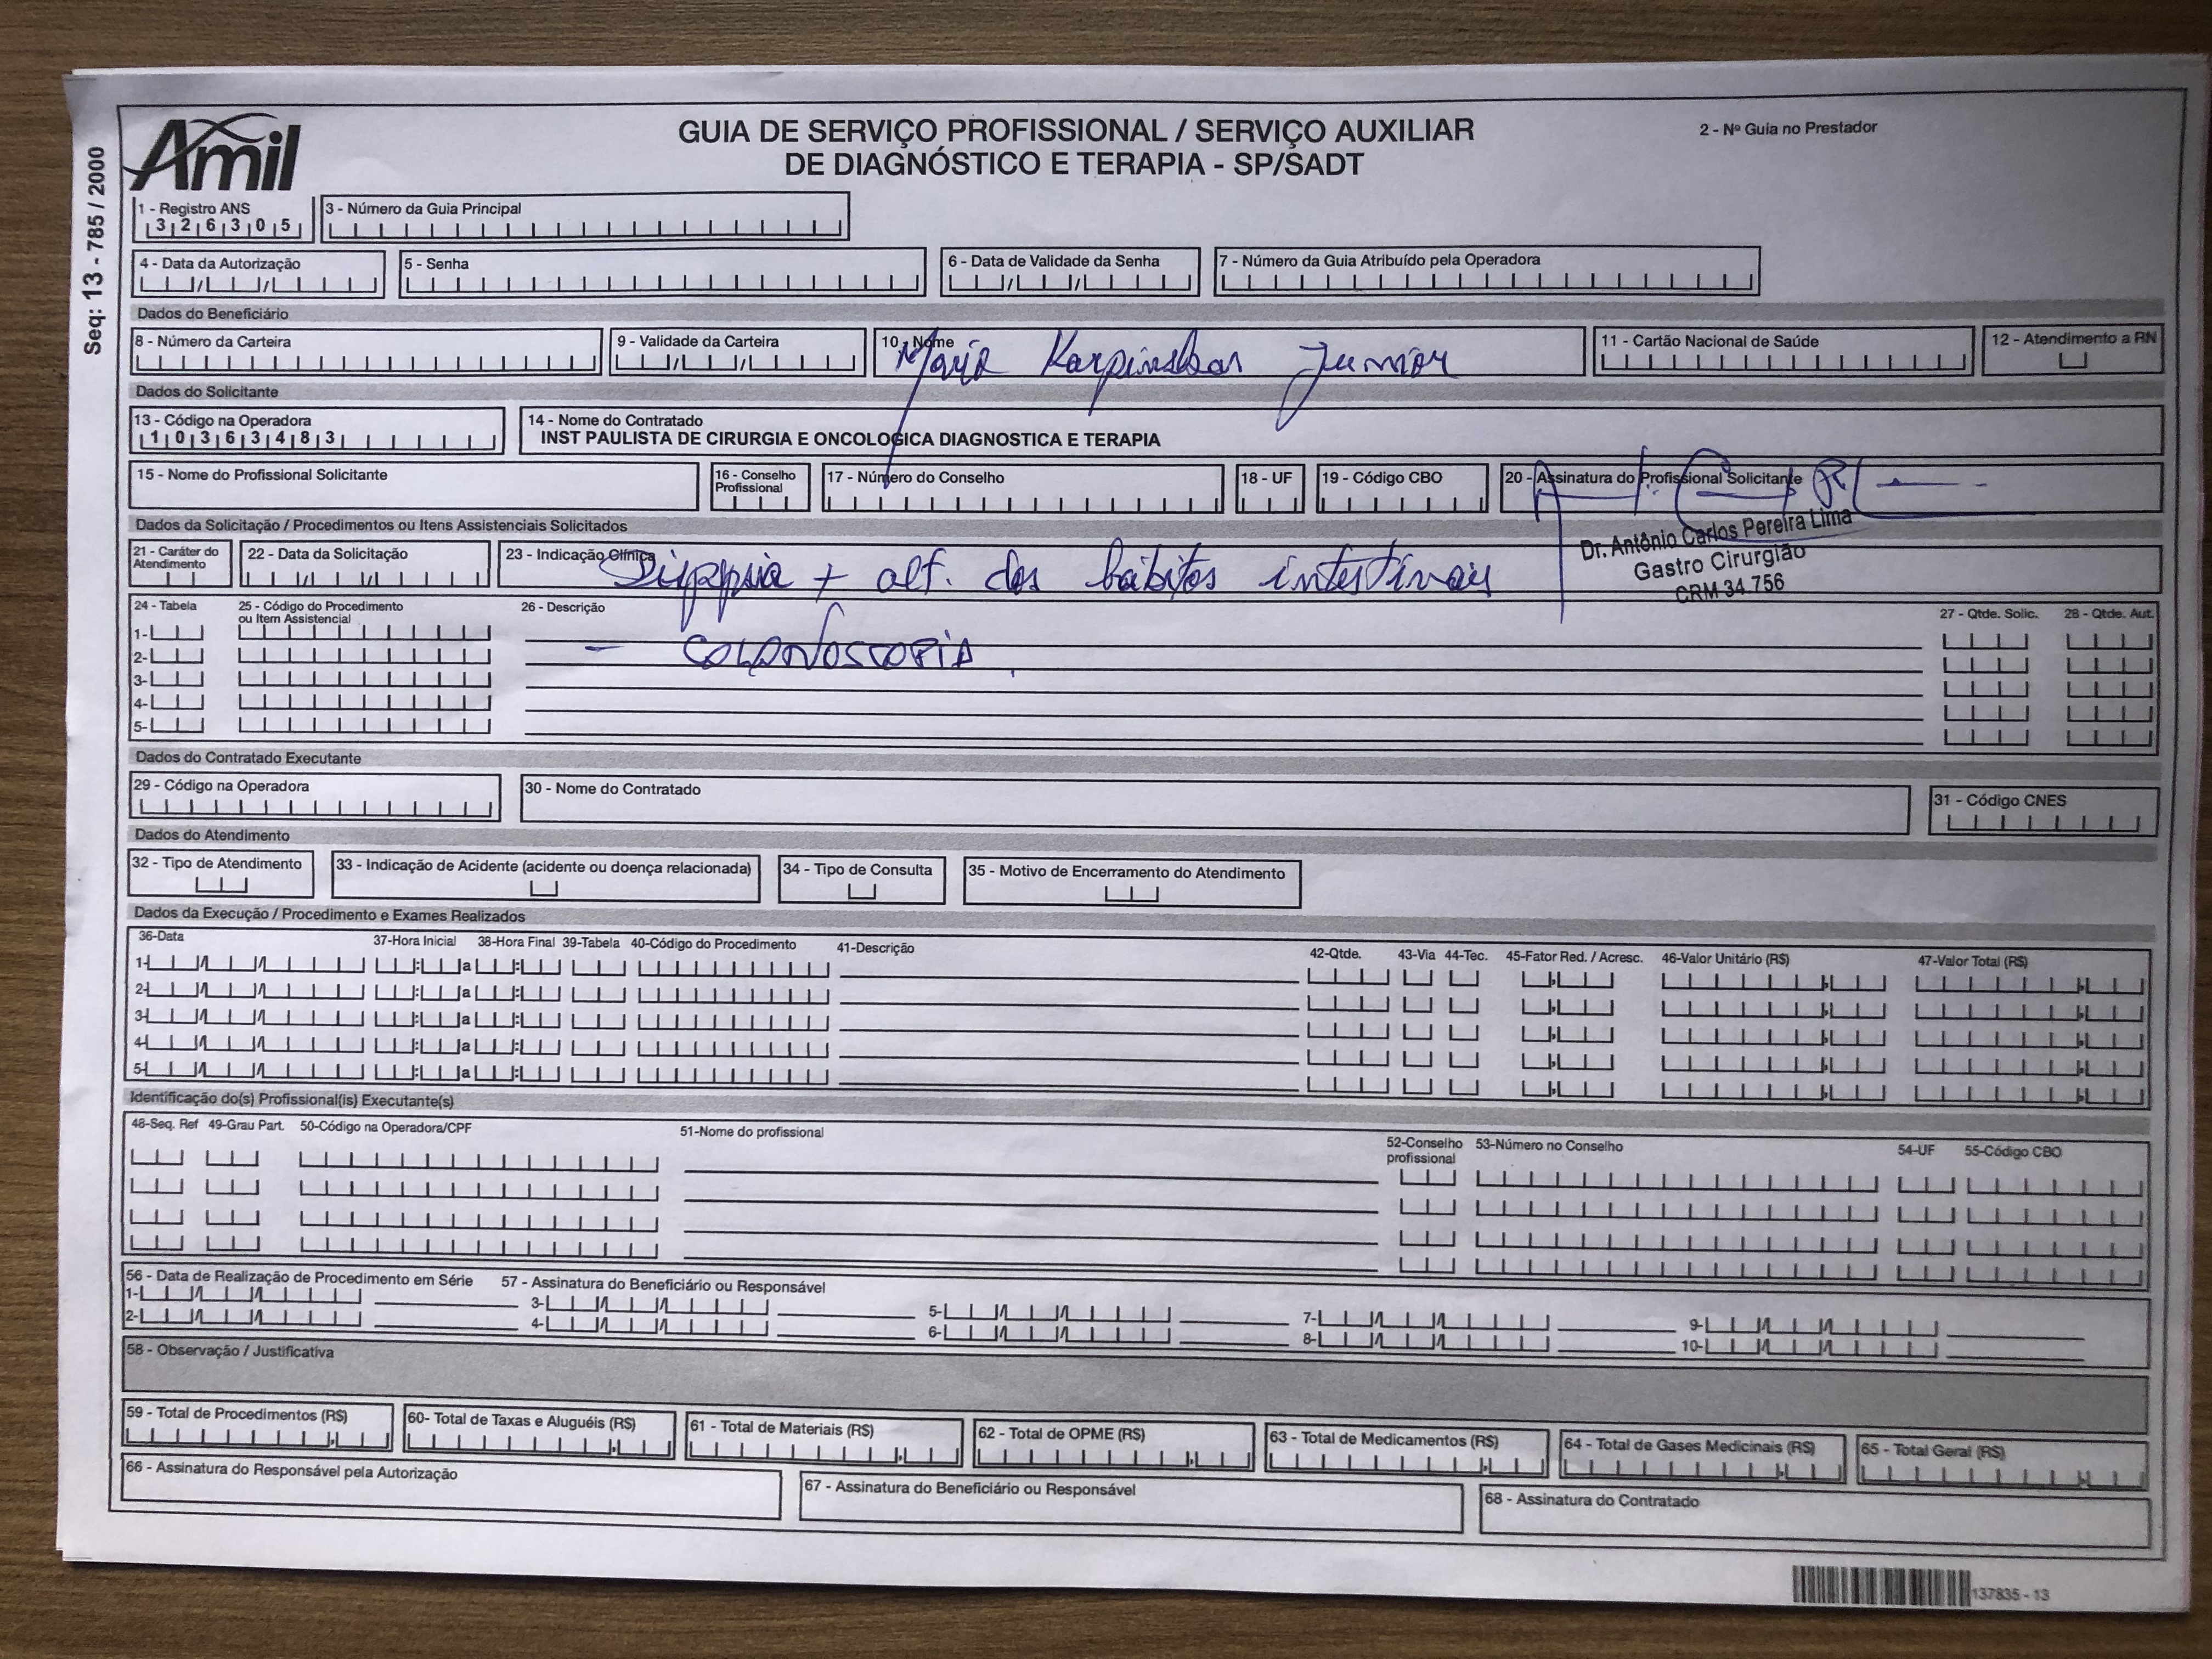 Seq: 13 - 785 / 2000
Amil
GUIA DE SERVIÇO PROFISSIONAL / SERVIÇO AUXILIAR
DE DIAGNÓSTICO E TERAPIA - SP/SADT
2 - Nº Guia no Prestador
1 - Registro ANS
3 2 6 3 0 5
3 - Número da Guia Principal
4 - Data da Autorização
5 - Senha
6 - Data de Validade da Senha
7 - Número da Guia Atribuído pela Operadora
Dados do Beneficiário
8 - Número da Carteira
9 - Validade da Carteira
10 - Nome
11 - Cartão Nacional de Saúde
12 - Atendimento a RN
Junior
Dados do Solicitante
13 - Código na Operadora
1 0 3 6 3 4 8 3
14 - Nome do Contratado
INST PAULISTA DE CIRURGIA E ONCOLOGICA DIAGNOSTICA E TERAPIA
15 - Nome do Profissional Solicitante
16 - Conselho Profissional
17 - Número do Conselho
18 - UF
19 - Código CBO
20 - Assinatura do Profissional Solicitante
Dr. Antônio Carlos Pereira Lima
Gastro Cirurgião
CRM 34.756
Dados da Solicitação / Procedimentos ou Itens Assistenciais Solicitados
21 - Caráter do Atendimento
22 - Data da Solicitação
23 - Indicação Clínica
Dispepsia + alt. dos hábitos intestinais
24 - Tabela
25 - Código do Procedimento ou Item Assistencial
26 - Descrição
27 - Qtde. Solic.
28 - Qtde. Aut.
1-
2-
- Colonoscopia
3-
4-
5-
Dados do Contratado Executante
29 - Código na Operadora
30 - Nome do Contratado
31 - Código CNES
Dados do Atendimento
32 - Tipo de Atendimento
33 - Indicação de Acidente (acidente ou doença relacionada)
34 - Tipo de Consulta
35 - Motivo de Encerramento do Atendimento
Dados da Execução / Procedimento e Exames Realizados
36-Data
37-Hora Inicial
38-Hora Final
39-Tabela
40-Código do Procedimento
41-Descrição
42-Qtde.
43-Via
44-Tec.
45-Fator Red. / Acresc.
46-Valor Unitário (R$)
47-Valor Total (R$)
1- a
2- a
3- a
4- a
5- a
Identificação do(s) Profissional(is) Executante(s)
48-Seq. Ref
49-Grau Part.
50-Código na Operadora/CPF
51-Nome do profissional
52-Conselho profissional
53-Número no Conselho
54-UF
55-Código CBO
56 - Data de Realização de Procedimento em Série
57 - Assinatura do Beneficiário ou Responsável
1- 3- 5- 7- 9-
2- 4- 6- 8- 10-
58 - Observação / Justificativa
59 - Total de Procedimentos (R$)
60- Total de Taxas e Aluguéis (R$)
61 - Total de Materiais (R$)
62 - Total de OPME (R$)
63 - Total de Medicamentos (R$)
64 - Total de Gases Medicinais (R$)
65 - Total Geral (R$)
66 - Assinatura do Responsável pela Autorização
67 - Assinatura do Beneficiário ou Responsável
68 - Assinatura do Contratado
137835 - 13